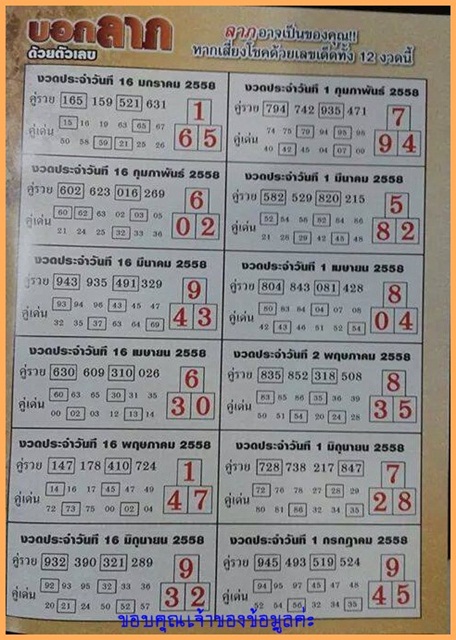 บอกลาภ
ด้วยตัวเลข
ลาภอาจเป็นของคุณ!!
หากเสี่ยงโชคด้วยเลขเด็ดทั้ง 12 งวดนี้
งวดประจำวันที่ 16 มกราคม 2558
คู่รวย 165 159 521 631
1
คู่เด่น 15 16 19 63 65 67
50 58 59 21 25 26
6 5
งวดประจำวันที่ 1 กุมภาพันธ์ 2558
คู่รวย 794 742 935 471
7
คู่เด่น 74 75 79 94 95 98
40 42 45 04 07 09
9 4
งวดประจำวันที่ 16 กุมภาพันธ์ 2558
คู่รวย 602 623 016 269
6
คู่เด่น 60 62 63 02 03 05
21 24 25 32 33 36
0 2
งวดประจำวันที่ 1 มีนาคม 2558
คู่รวย 582 529 820 215
5
คู่เด่น 52 54 58 82 84 86
21 28 29 42 45 48
8 2
งวดประจำวันที่ 16 มีนาคม 2558
คู่รวย 943 935 491 329
9
คู่เด่น 93 94 96 43 45 47
32 35 37 63 64 69
4 3
งวดประจำวันที่ 1 เมษายน 2558
คู่รวย 804 843 081 428
8
คู่เด่น 80 83 84 04 07 08
42 43 46 51 52 54
0 4
งวดประจำวันที่ 16 เมษายน 2558
คู่รวย 630 609 310 026
6
คู่เด่น 60 63 65 30 31 35
00 02 03 12 13 14
3 0
งวดประจำวันที่ 2 พฤษภาคม 2558
คู่รวย 835 852 318 508
8
คู่เด่น 83 85 86 35 36 39
50 51 54 20 24 28
3 5
งวดประจำวันที่ 16 พฤษภาคม 2558
คู่รวย 147 178 410 724
1
คู่เด่น 14 16 17 45 47 49
72 73 75 00 02 04
4 7
งวดประจำวันที่ 1 มิถุนายน 2558
คู่รวย 728 738 217 847
7
คู่เด่น 72 76 78 27 28 29
80 81 86 32 34 35
2 8
งวดประจำวันที่ 16 มิถุนายน 2558
คู่รวย 932 390 321 289
9
คู่เด่น 92 93 95 32 33 36
20 21 24 50 52 57
3 2
งวดประจำวันที่ 1 กรกฎาคม 2558
คู่รวย 945 493 519 524
9
คู่เด่น 94 95 97 45 47 48
52 54 56 32 34 35
4 5
ขอบคุณเจ้าของข้อมูลค่ะ